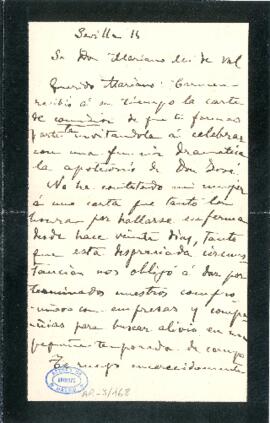 Sevilla 14
Sr Don Mariano M. de Val
Querido Mariano: Carmen
recibió á su tiempo la carta
de comisión de que tú formas
parte invitandola á celebrar
con una función dramatica
la apoteosis de Don José.
No ha contestado mi mujer
á una carta que tanto la
honra por hallarse enferma
desde hace veinte dias, tanto
que esta desgraciada circuns-
tancia nos obligó á dar por
terminados nuestros compro-
misos con empresas y compa-
ñias para buscar alivio en una
pequeña temporada de campo
Te ruego encarecidamente
AP-3/168